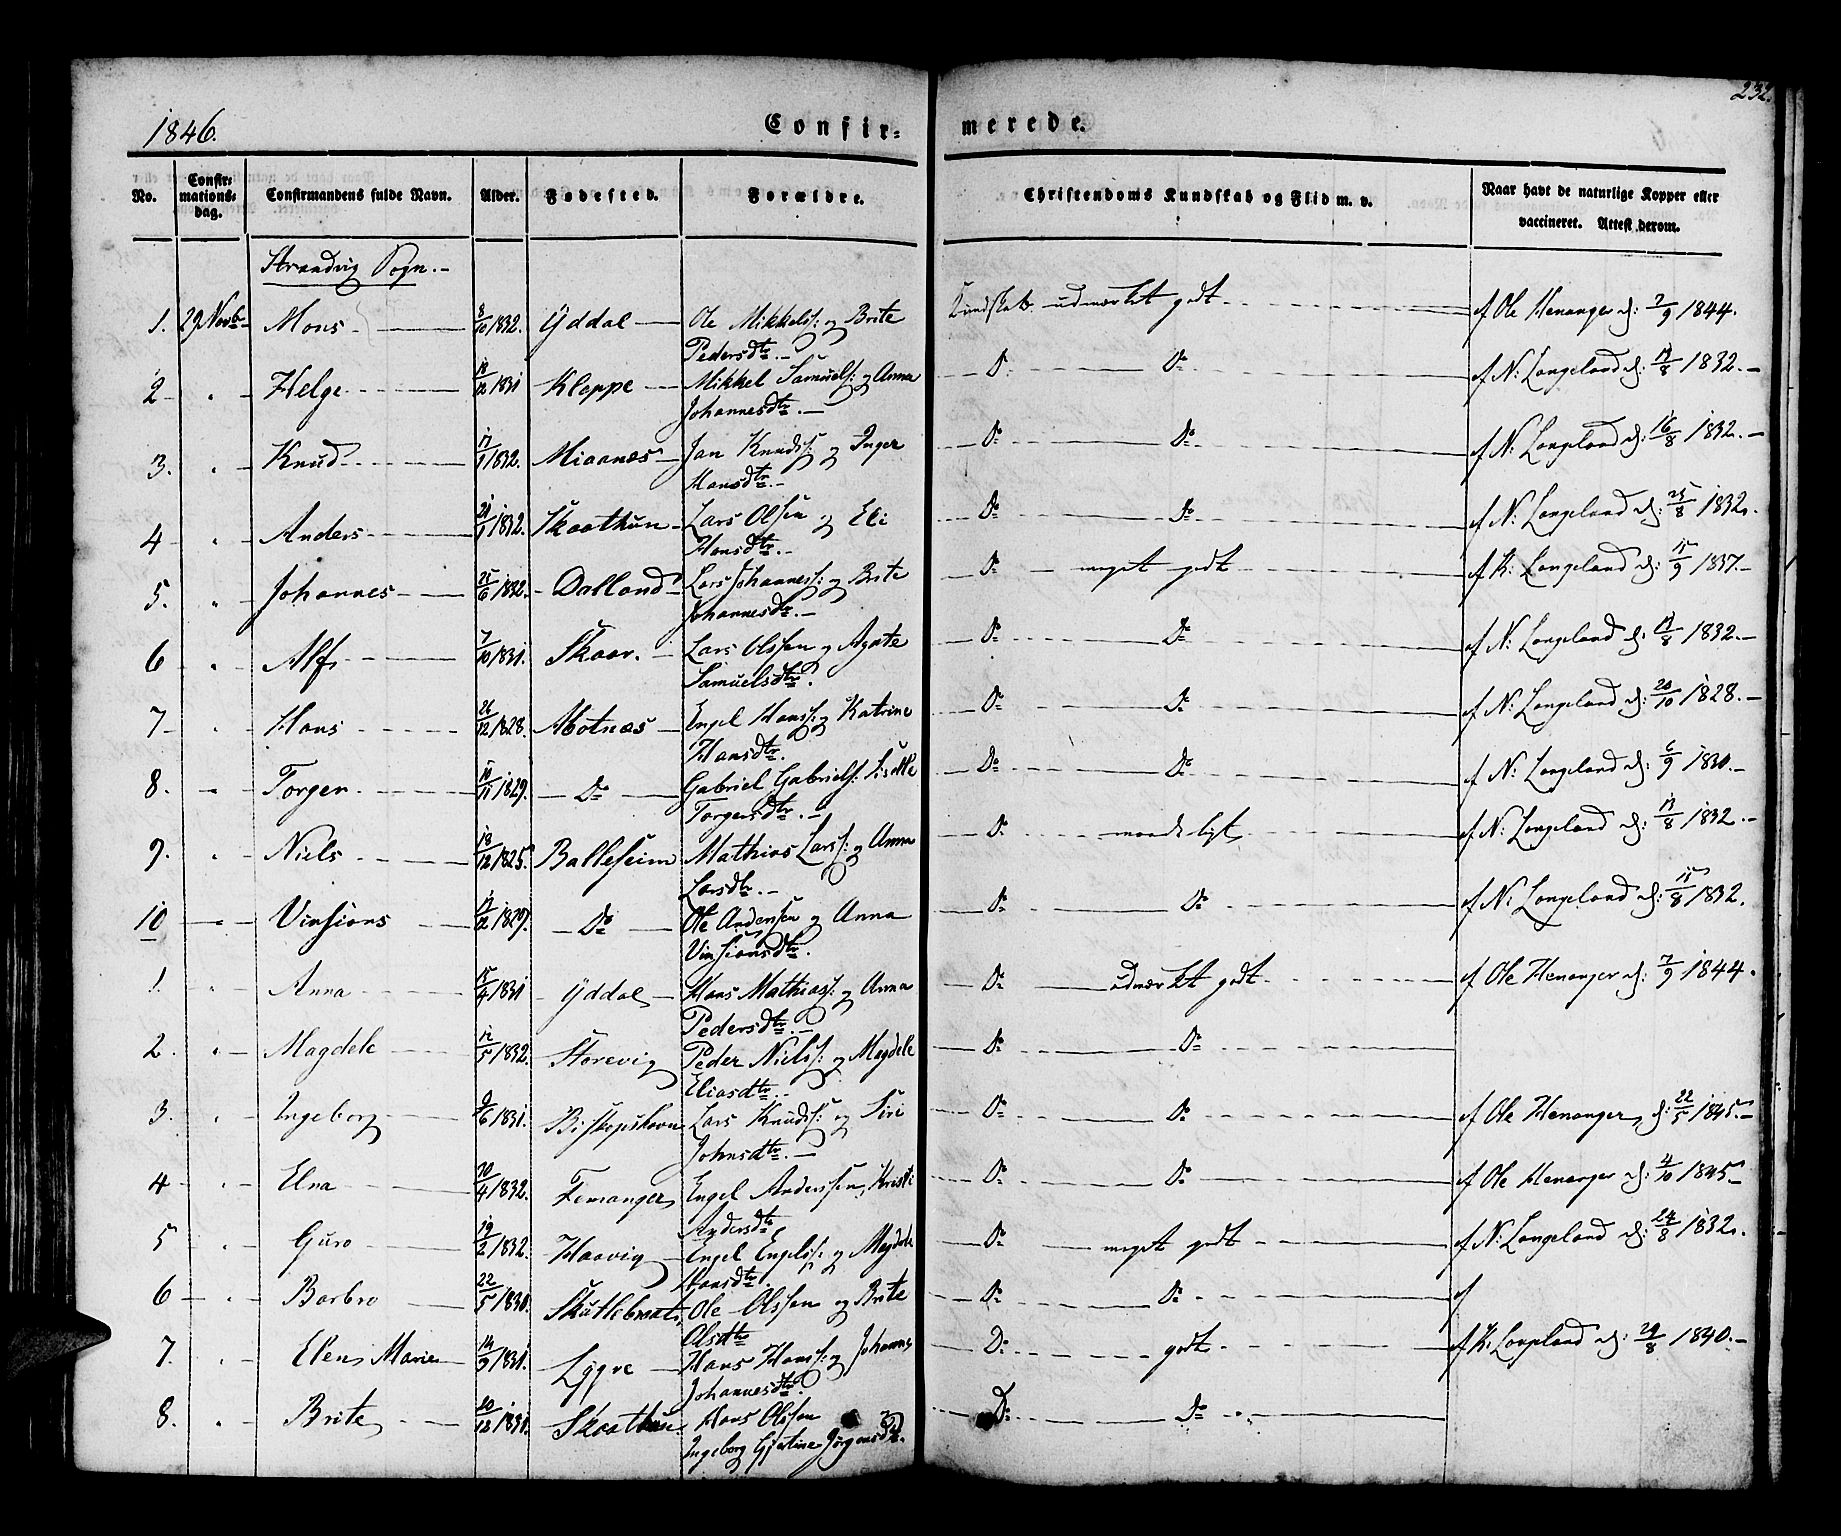 232.
1846. Confir- merede.
No. Confir-mations-dag. Confirmandens fulde Navn. Alder. Fødested. Forældre. Christendoms Kundskab og Flid m. v. Naar havt de naturlige Kopper eller vaccineret. Attest derom.
Strandvig Sogn.
1. 29 Novbr Mons 8/10 1832. Yddal Ole Mikkels: og Brite Pedersdtr. Kundskab udmærket godt af Ole Henanger d: 7/9 1844.
2 " Helge 18/12 1831 Kleppe Mikkel Samuels: og Anna Johannesdtr. Do Do af N: Langeland d: 17/8 1832.
3. " Knud 17/1 1832. Miaanæs Jan Knuds: og Inger Hansdtr. Do Do af N: Langeland d: 16/8 1832.
4 " Anders 21/1 1832. Skaathun Lars Olsen og Eli Hansdtr. Do Do af N: Langeland d: 25/8 1832.
5. " Johannes 25/6 1832. Dalland Lars Johanness: og Brite Johannesdtr. Do meget godt af K: Langeland d: 15/9 1837.
6 " Alf 7/10 1831. Skaar. Lars Olssen og Agate Samuelsdtr. Do Do af N: Langeland d: 17/8 1832.
7 " Hans 26/12 1828. Motnæs Engel Hanss: og Katrine Hansdtr. Do Do af N: Langeland d: 20/10 1828.
8. " Torger 10/11 1829. Do Gabriel Gabriels: Siselle Torgersdtr. Do Do af N: Langeland d: 6/9 1830.
9. " Niels 18/12 1825. Balleseim Mathias Larss: og Anna Larsdtr. Do maadeligt af N: Langeland d: 17/8 1832.
10 " Vinsians 17/12 1829. Do Ole Andersen og Anna Vinsiansdtr. Do Do af N: Langeland d: 15/8 1832.
1. " Anna 15/4 1831 Yddal Hans Mathiass: og Anna Pedersdtr. Do udmærket godt af Ole Henanger d: 7/9 1844.
2. " Magdele 12/5 1832. Storevig Peder Nielss: og Magdele Eliasdtr. Do Do
3. " Ingeborg 9/6 1831. Biskopshavn Lars Knuds: og Siri Johnsdtr. Do Do af Ole Henanger d: 22/5 1845.
4 " Elna 20/4 1832. Femanger Engel Anderssen, Kristi Andersdtr Do Do af Ole Henanger d: 4/10 1845.
5 " Guro 19/2 1832. Haavig Engel Engelss: og Magdele Hansdtr. Do meget godt af N: Langeland d: 24/8 1832.
6 " Barbro 22/5 1830. Ole Olssen og Brite Olsdtr Do Do af
7. " Elen Marie 14/9 1831. Lygre Hans Hanss: og Johanna Johannesdtr. Do godt af K: Langeland d: 29/8 1840.
8. " Brite 20/12 1831. Skaathun Hans Olssen Ingeborg Gjertine Jørgensdtr. Do Do